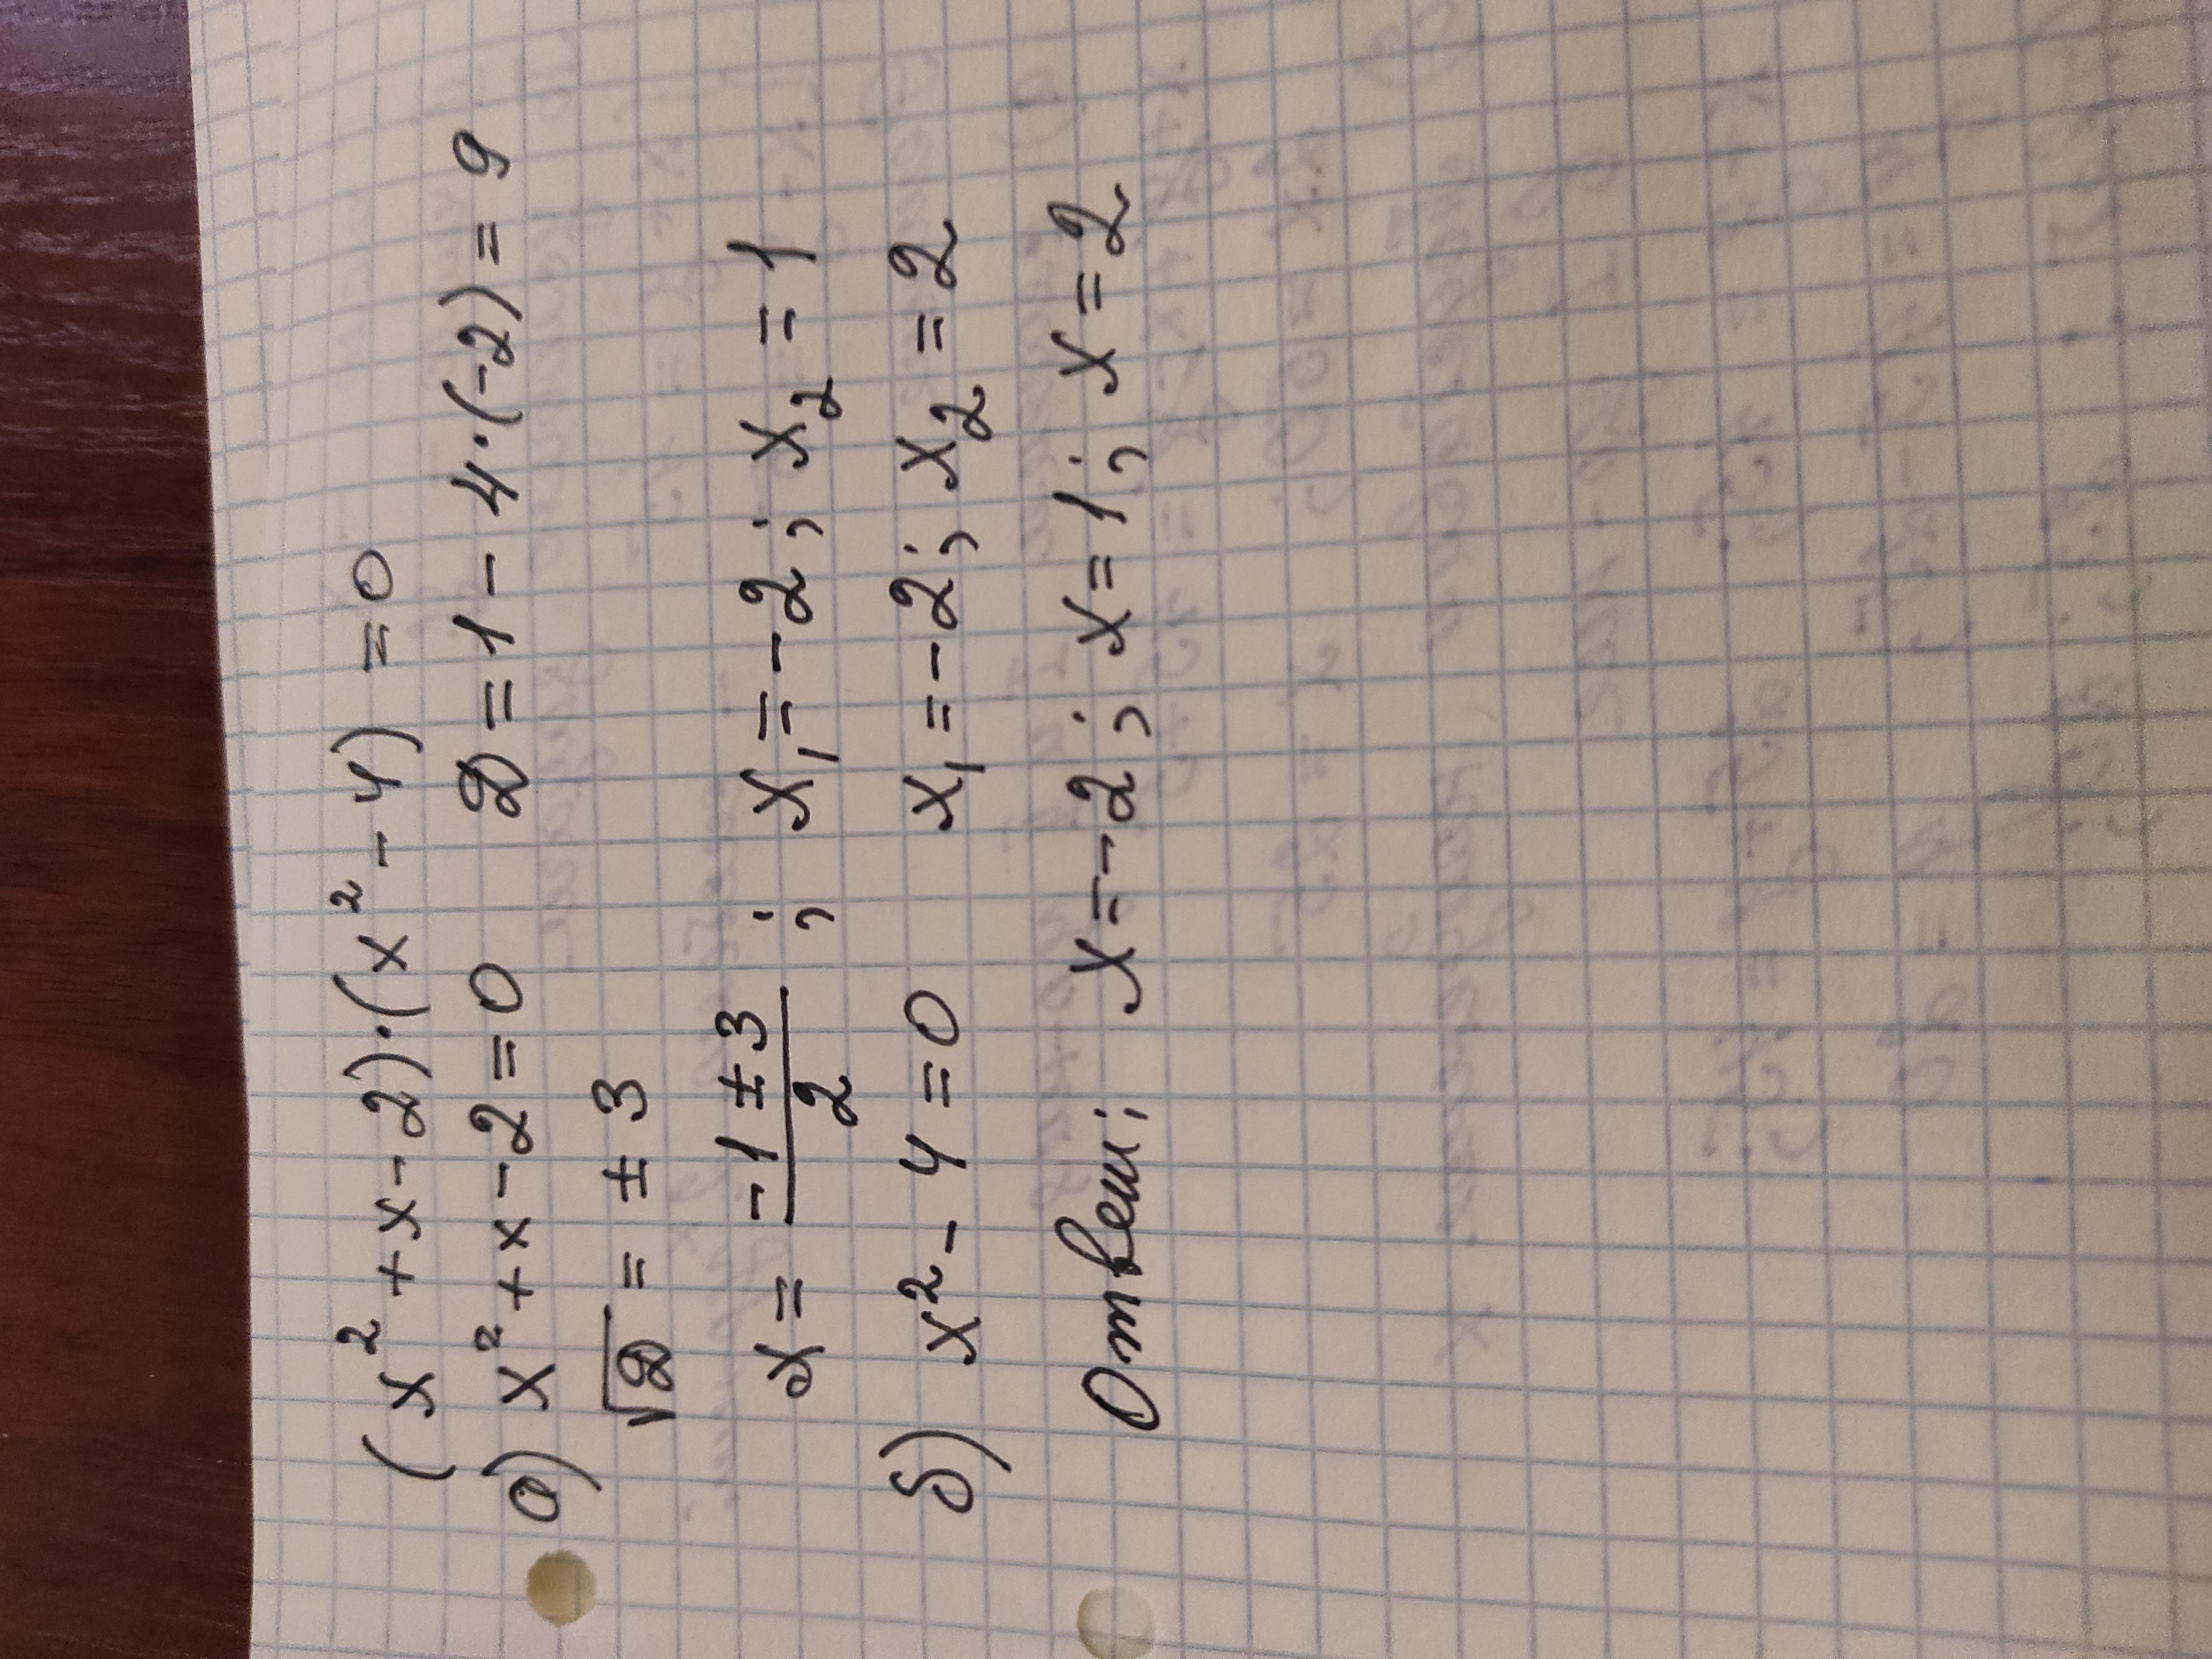 (x² + x - 2)·(x² - 4) = 0
а) x² + x - 2 = 0 D = 1 - 4·(-2) = 9
√D = ± 3
x = (-1 ± 3)/2 ; x₁ = -2; x₂ = 1
б) x² - 4 = 0 x₁ = -2; x₂ = 2
Ответ: x = -2; x = 1; x = 2